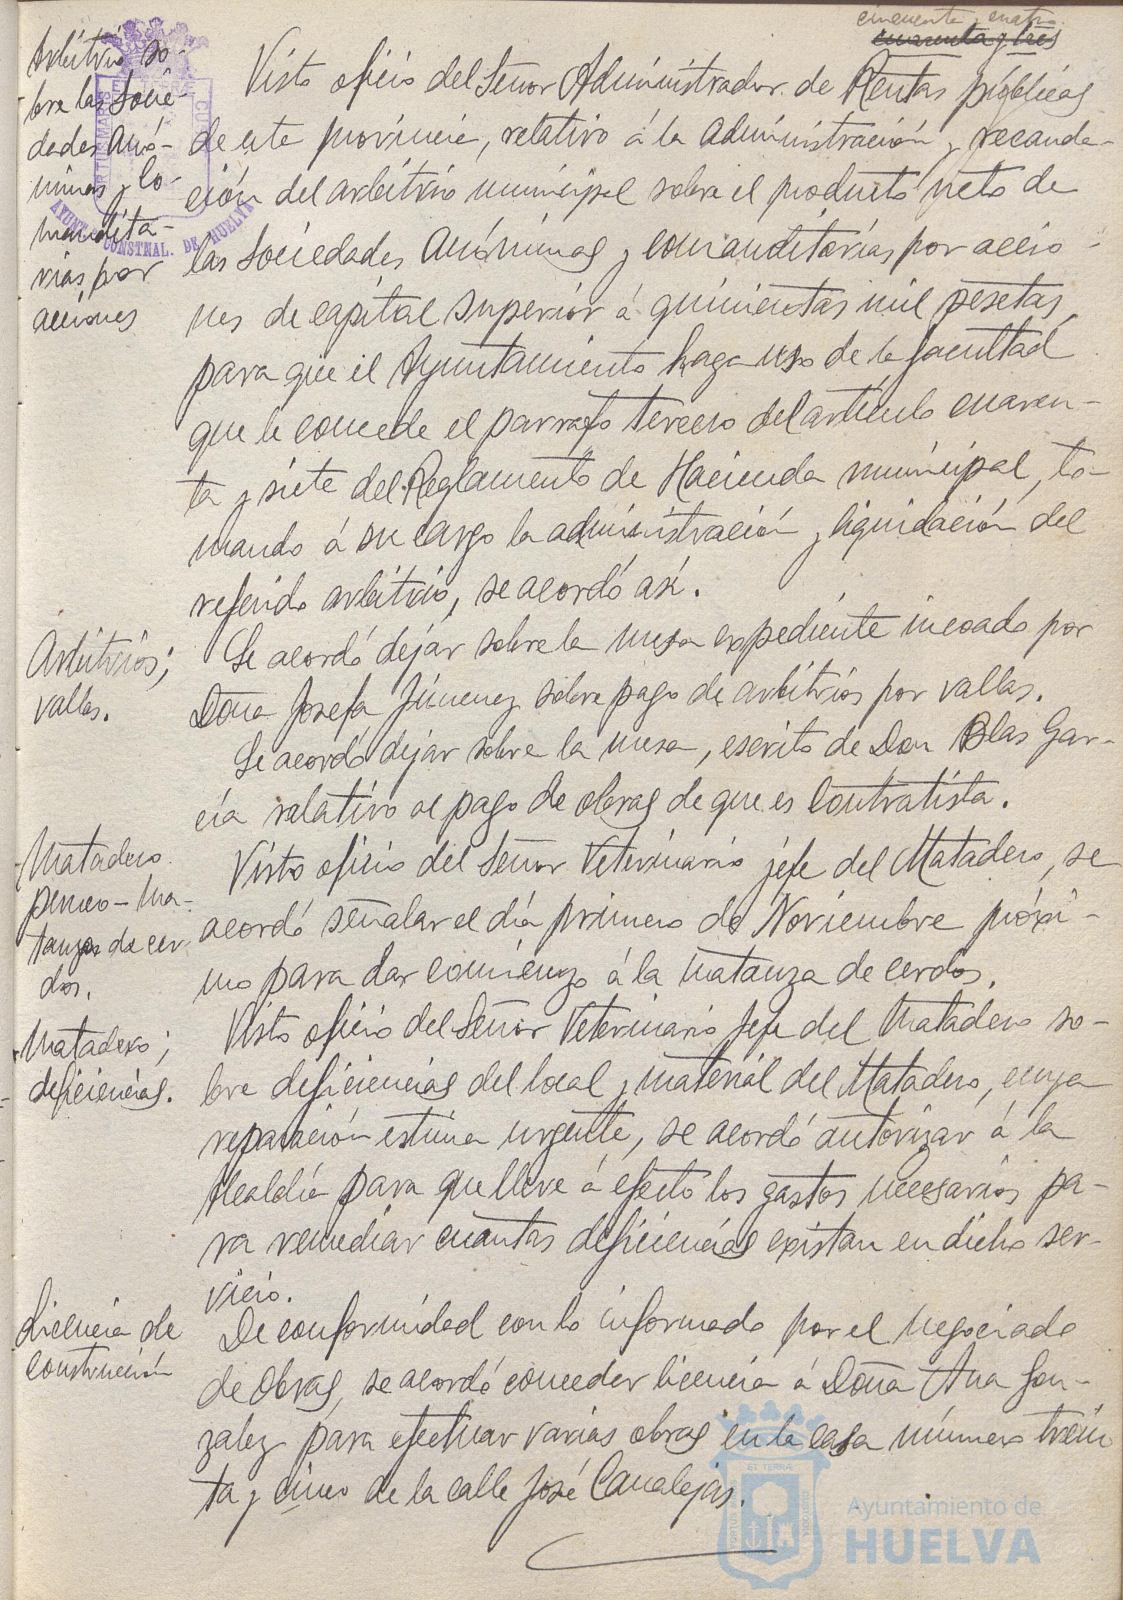 cincuenta y cuatro
cuarenta y tres
Arbitrio so-
bre las Socie-
dades Anó-
nimas y co-
mandita-
rias por
acciones
Visto oficio del Señor Administrador de Rentas públicas
de esta provincia, relativo á la administración y recauda-
ción del arbitrio municipal sobre el producto neto de
las Sociedades Anónimas y comanditarias por accio-
nes de capital superior á quinientas mil pesetas,
para que el Ayuntamiento haga uso de la facultad
que le concede el parrafo tercero del artículo cuaren-
ta y siete del Reglamento de Hacienda municipal, to-
mando á su cargo la administración y liquidación del
referido arbitrio, se acordó así.
Arbitrios;
vallas.
Se acordó dejar sobre la mesa expediente incoado por
Doña Josefa Jimenez sobre pago de arbitrios por vallas.
Se acordó dejar sobre la mesa, escrito de Don Blas Gar-
cía relativo al pago de obras de que es Contratista.
Matadero
Ma-
tanzas de cer-
dos.
Visto oficio del Señor Veterinario jefe del Matadero, se
acordó señalar el día primero de Noviembre próxi-
mo para dar comienzo á la matanza de cerdos.
Matadero;
deficiencias.
Visto oficio del Señor Veterinario Jefe del Matadero so-
bre deficiencias del local y material del Matadero, cuya
reparación estima urgente, se acordó autorizar á la
Alcaldía para que lleve á efecto los gastos necesarios pa-
ra remediar cuantas deficiencias existan en dicho ser-
vicio.
Licencia de
construcción
De conformidad con lo informado por el negociado
de Obras, se acordó conceder licencia á Doña Ana Gon-
zalez para efectuar varias obras en la casa número trein
ta y cinco de la calle José Canalejas.
AYUNT. CONSTNAL. DE HUELVA
Ayuntamiento de
HUELVA